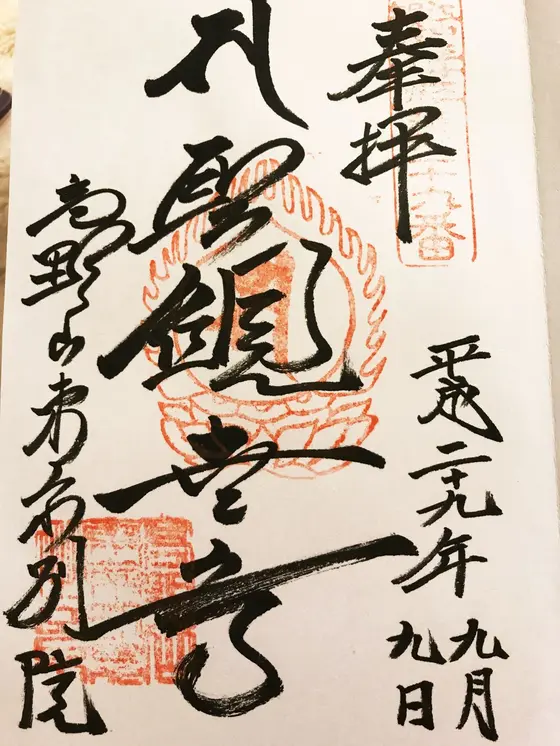 奉拝
十九番
平成二十九年
九月
九日
聖観世音
高野山東京別院